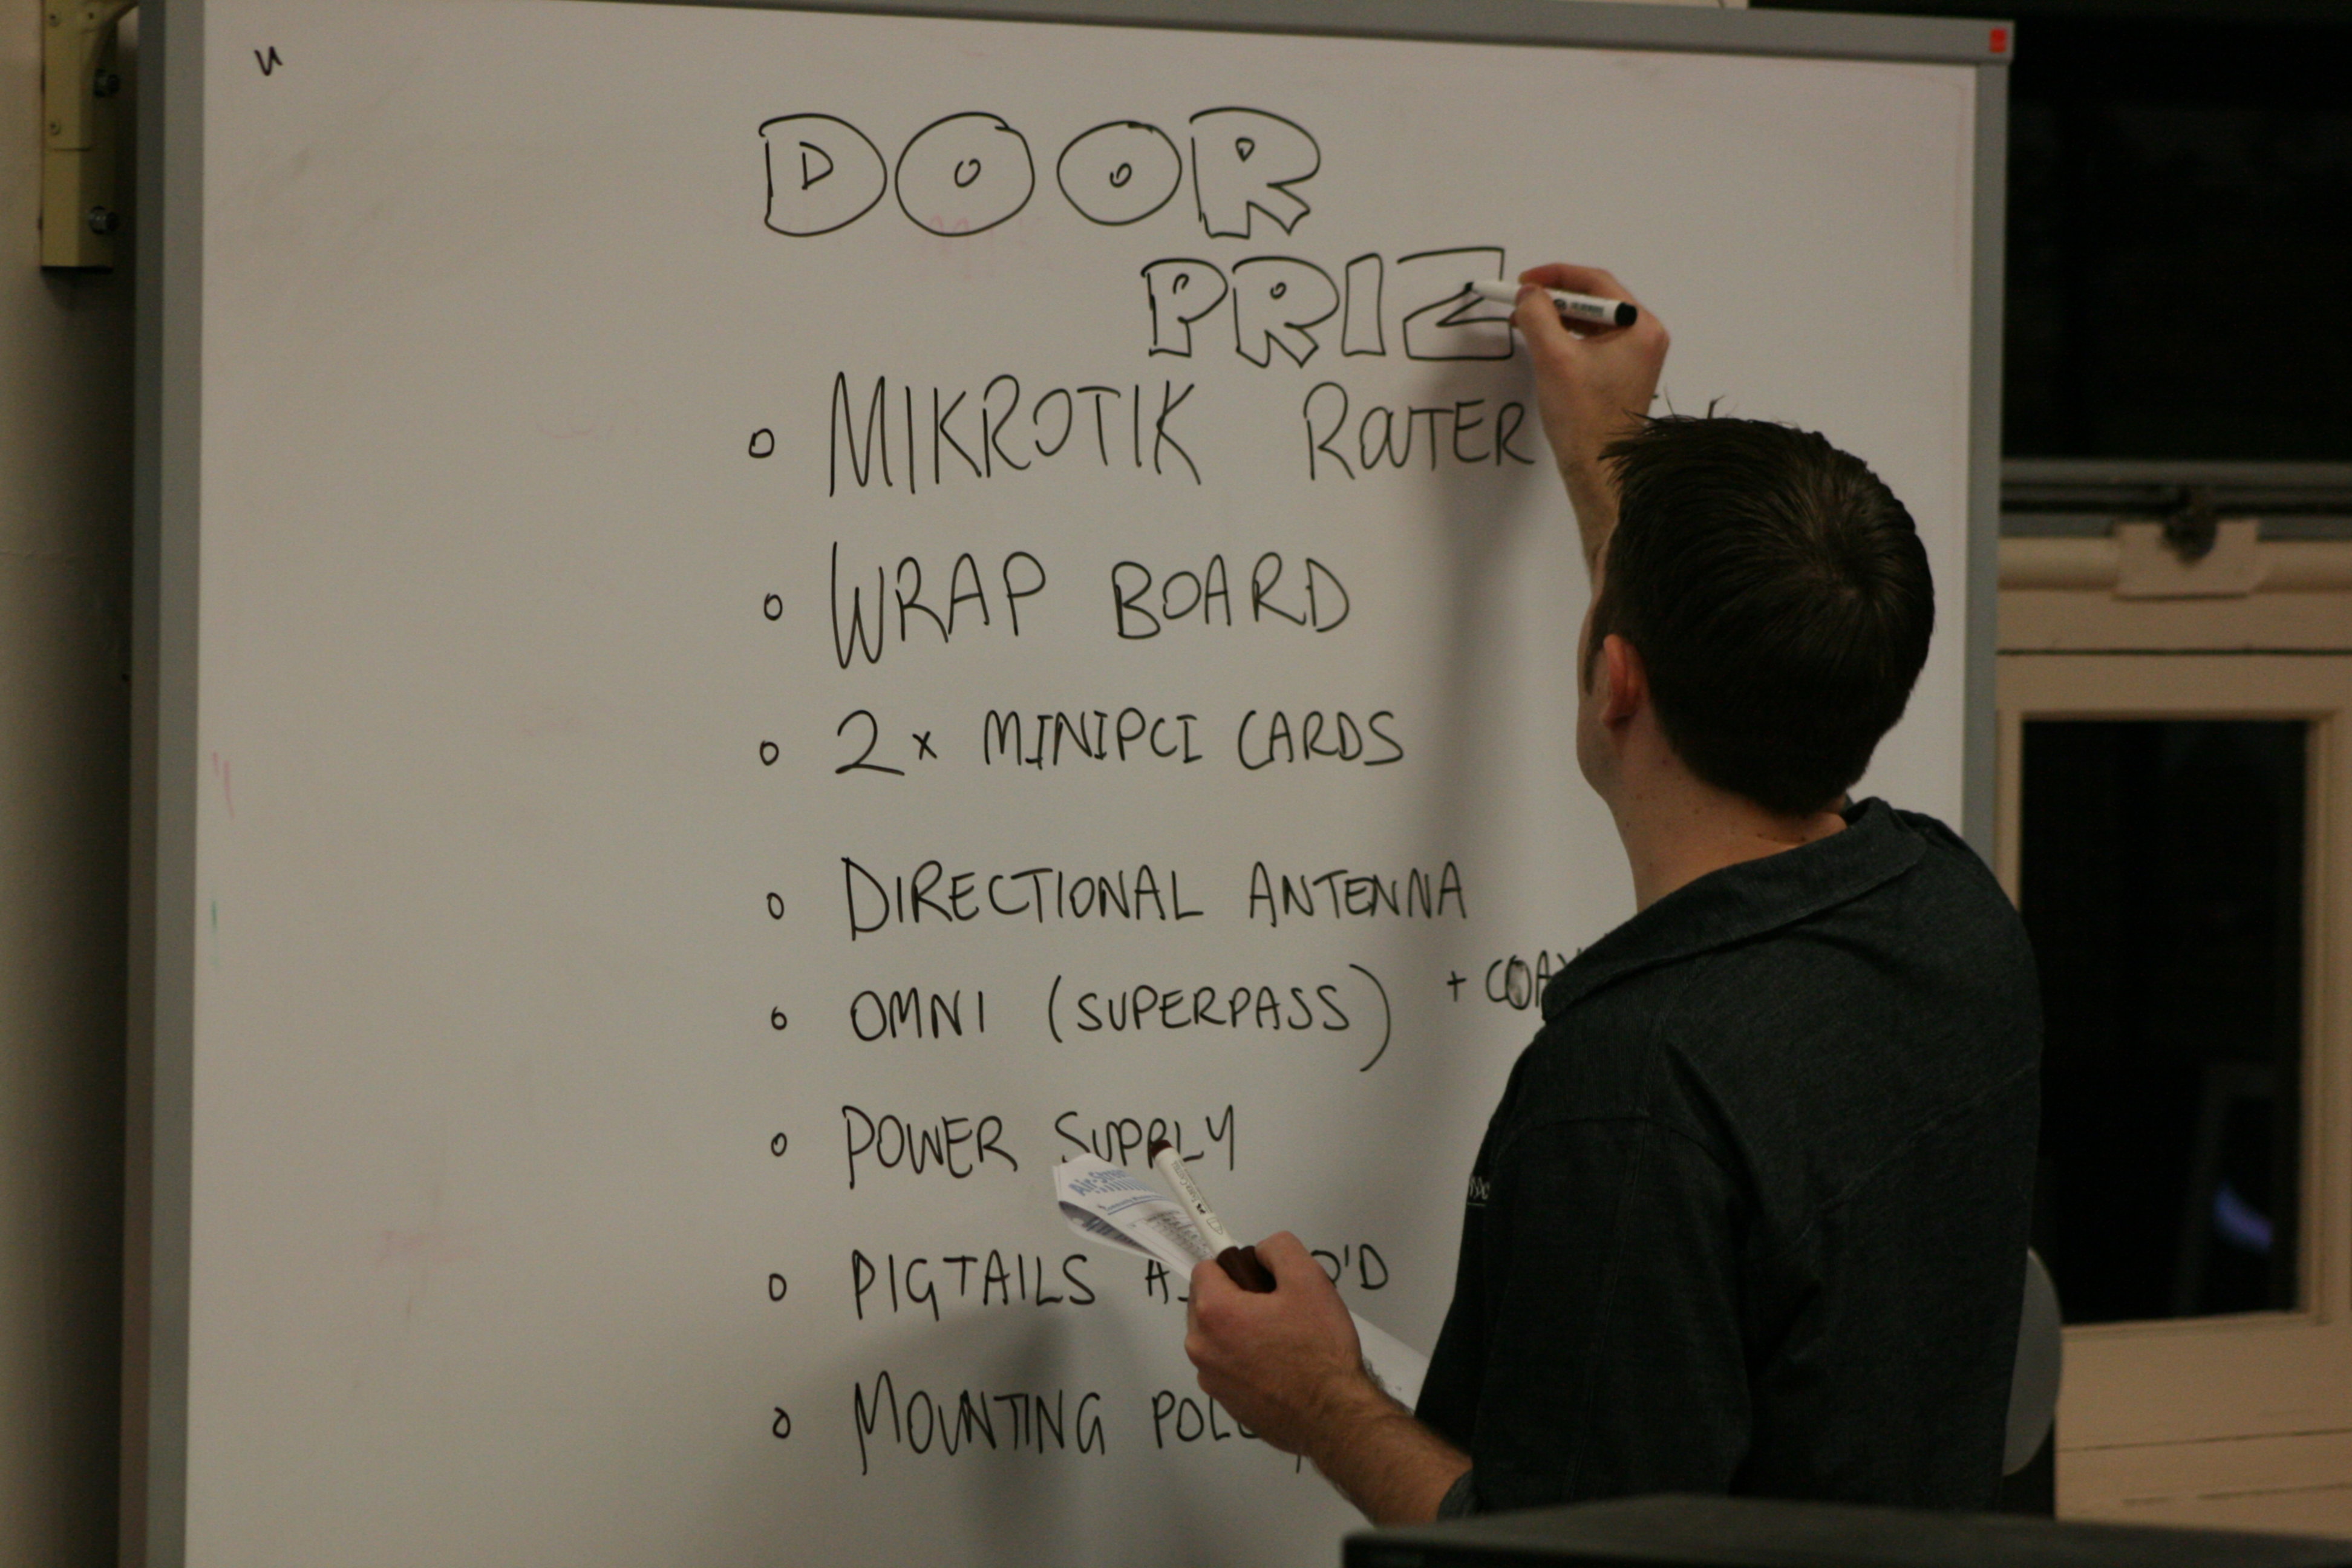 u
DOOR
PRIZ
MIKROTIK ROUTER
WRAP BOARD
2 x MINIPCI CARDS
DIRECTIONAL ANTENNA
OMNI (SUPERPASS) + COAX
POWER SUPPLY
PIGTAILS
MOUNTING